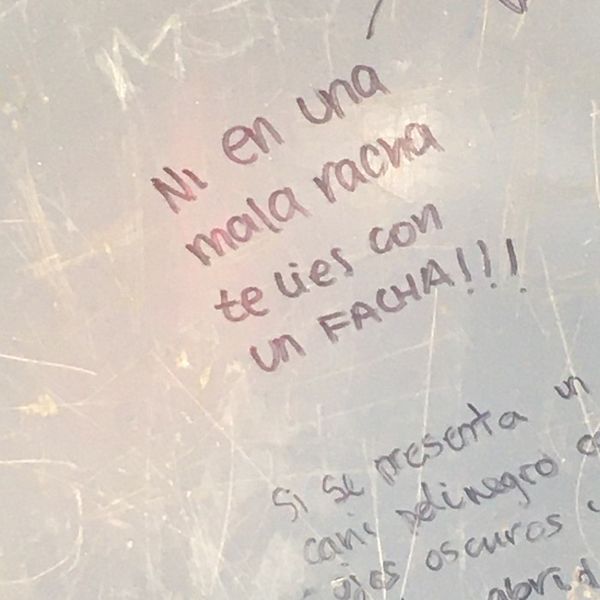 Ni en una
mala racha
te lies con
un FACHA!!!
si se presenta un
cani pelinegro
ojos oscuros